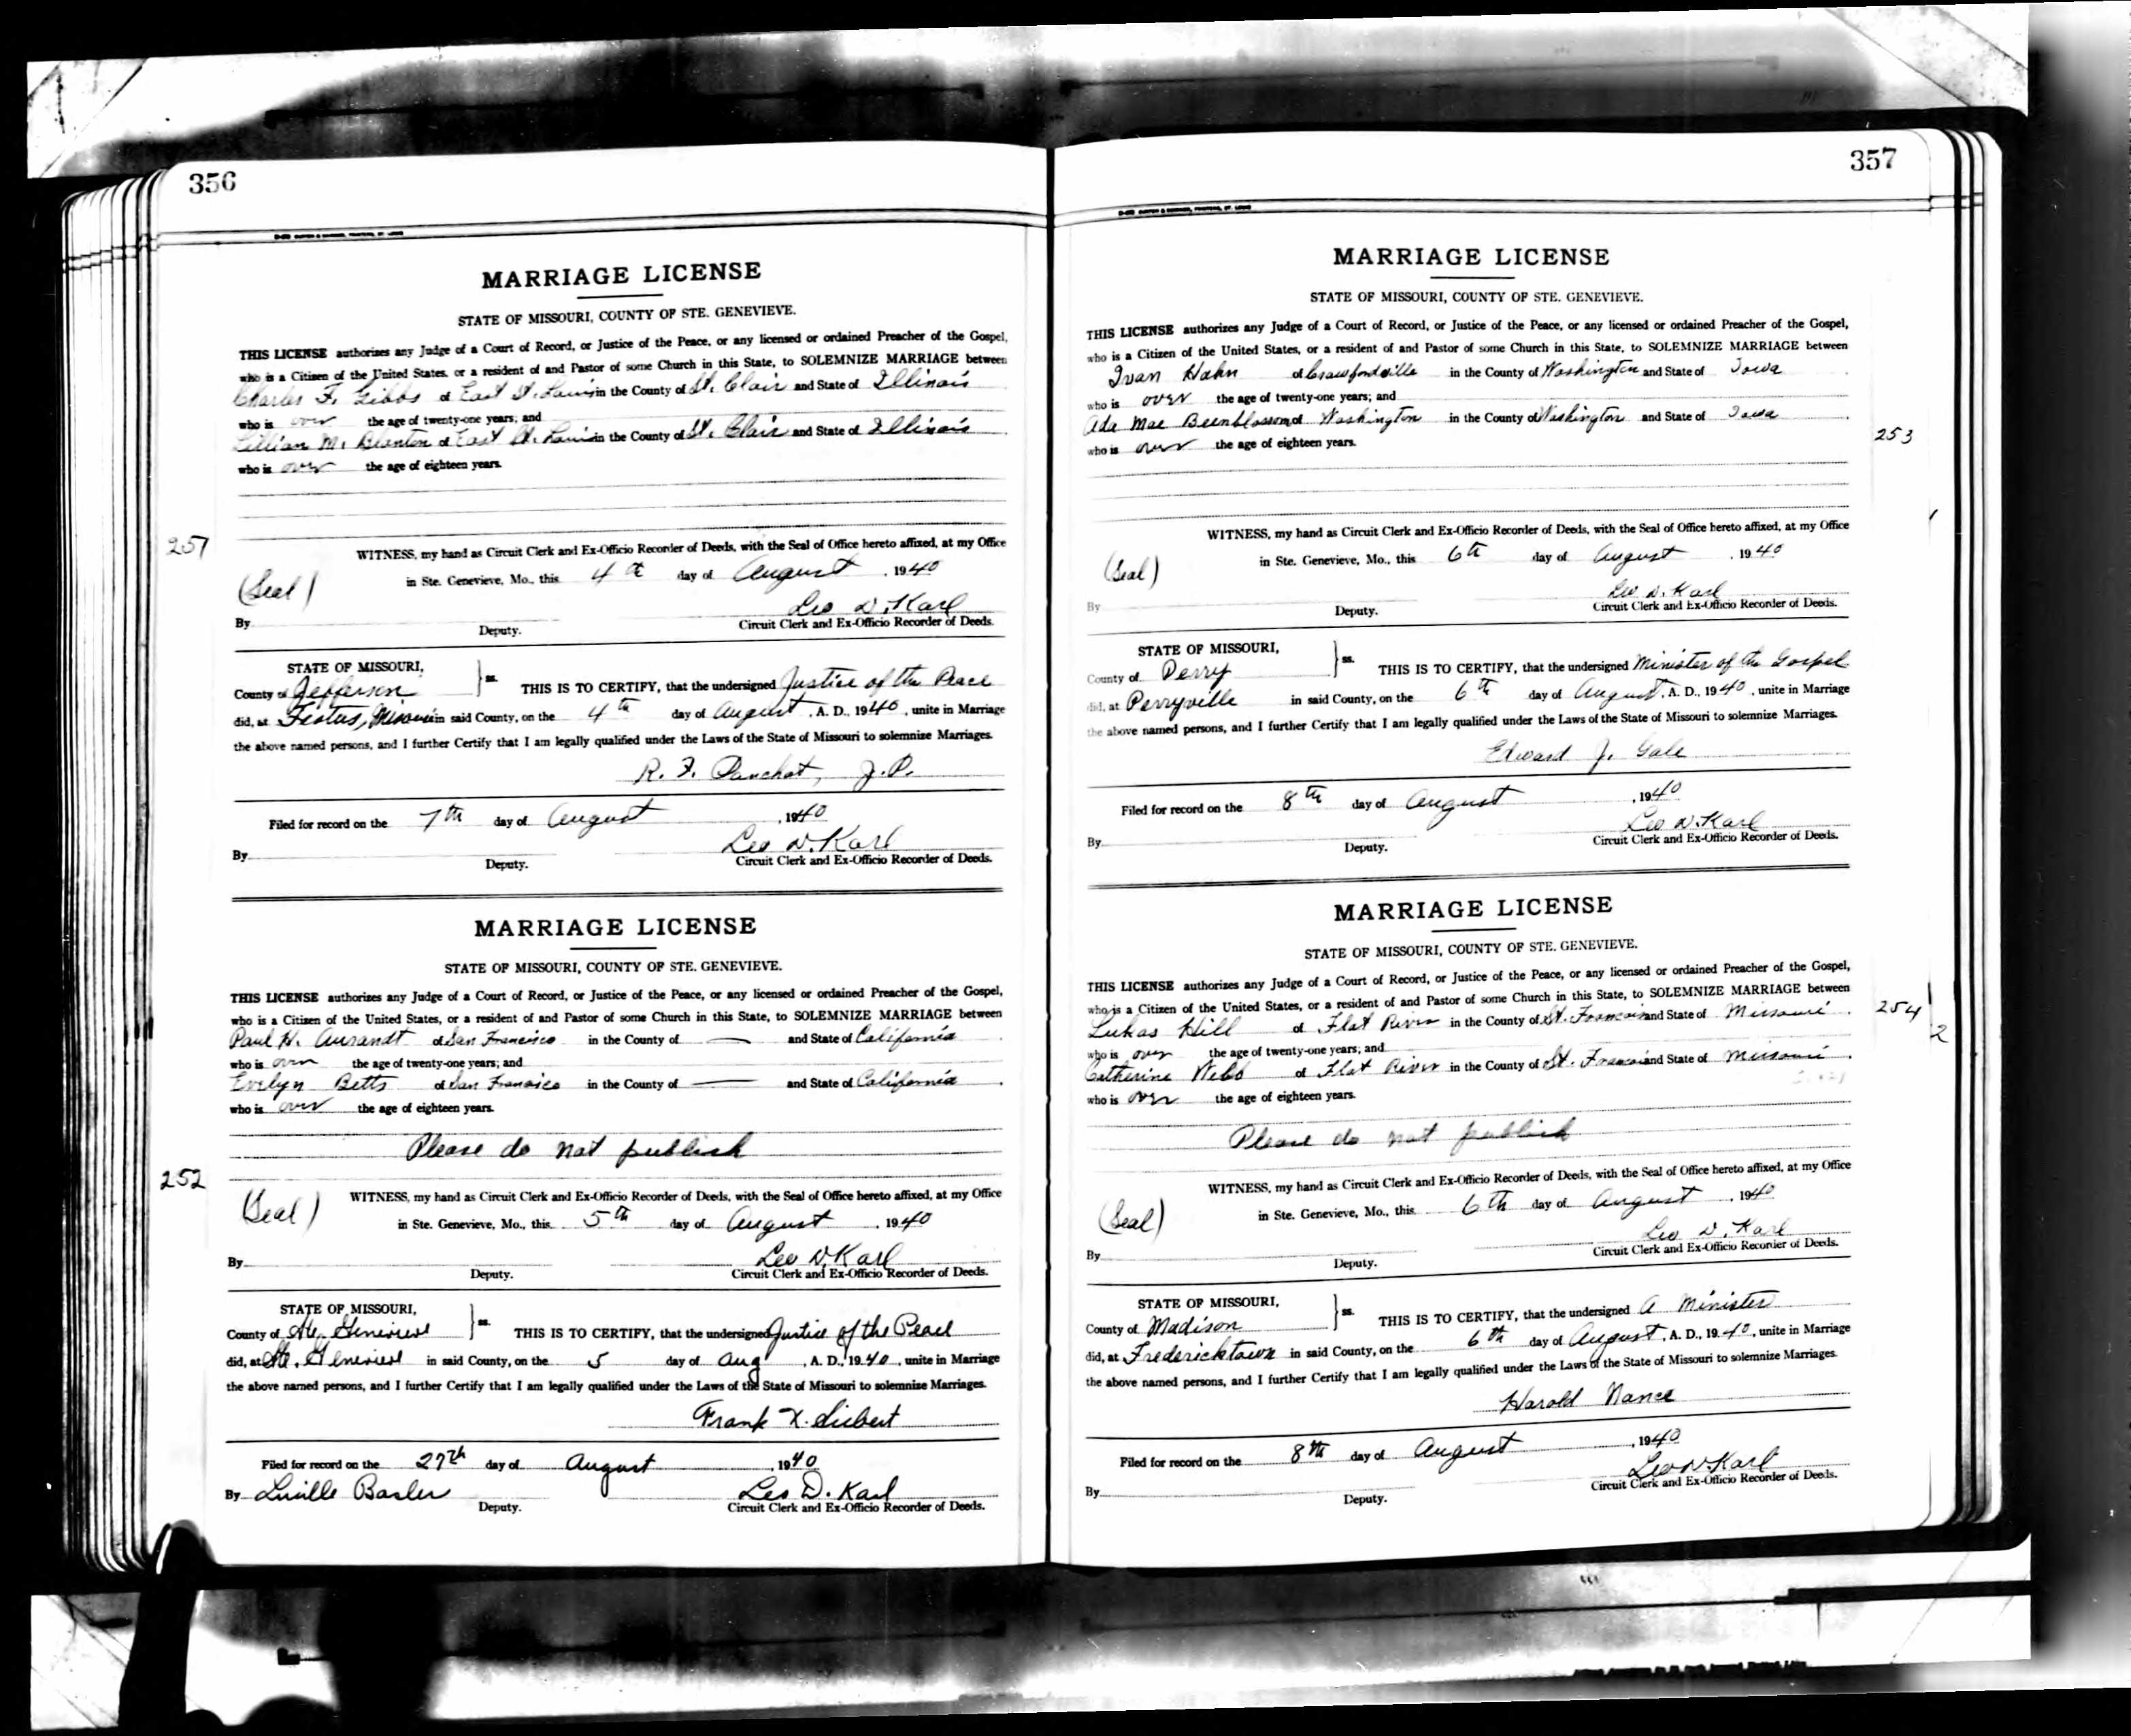 356
MARRIAGE LICENSE
STATE OF MISSOURI, COUNTY OF STE. GENEVIEVE.
THIS LICENSE authorizes any Judge of a Court of Record, or Justice of the Peace, or any licensed or ordained Preacher of the Gospel,
who is a Citizen of the United States, or a resident of and Pastor of some Church in this State, to SOLEMNIZE MARRIAGE between
Charles F. Gibbs of East St. Louis in the County of St. Clair and State of Illinois
who is over the age of twenty-one years; and
Lillian M. of East St. Louis in the County of St. Clair and State of Illinois
who is over the age of eighteen years.
251
WITNESS, my hand as Circuit Clerk and Ex-Officio Recorder of Deeds, with the Seal of Office hereto affixed, at my Office
(Seal) in Ste. Genevieve, Mo., this 4th day of August, 1940
Leo D. Karl
By Deputy. Circuit Clerk and Ex-Officio Recorder of Deeds.
STATE OF MISSOURI,
County of Jefferson } ss. THIS IS TO CERTIFY, that the undersigned Justice of the Peace
did, at Festus, Missouri in said County, on the 4th day of August, A. D., 1940, unite in Marriage
the above named persons, and I further Certify that I am legally qualified under the Laws of the State of Missouri to solemnize Marriages.
R. F. Panchot, J.P.
Filed for record on the 7th day of August, 1940
Leo D. Karl
By Deputy. Circuit Clerk and Ex-Officio Recorder of Deeds.
MARRIAGE LICENSE
STATE OF MISSOURI, COUNTY OF STE. GENEVIEVE.
THIS LICENSE authorizes any Judge of a Court of Record, or Justice of the Peace, or any licensed or ordained Preacher of the Gospel,
who is a Citizen of the United States, or a resident of and Pastor of some Church in this State, to SOLEMNIZE MARRIAGE between
Paul H. Aurandt of San Francisco in the County of — and State of California
who is over the age of twenty-one years; and
Evelyn Betts of San Francisco in the County of — and State of California
who is over the age of eighteen years.
Please do not publish
252
WITNESS, my hand as Circuit Clerk and Ex-Officio Recorder of Deeds, with the Seal of Office hereto affixed, at my Office
(Seal) in Ste. Genevieve, Mo., this 5th day of August, 1940
Leo D. Karl
By Deputy. Circuit Clerk and Ex-Officio Recorder of Deeds.
STATE OF MISSOURI,
County of Ste. Genevieve } ss. THIS IS TO CERTIFY, that the undersigned Justice of the Peace
did, at Ste. Genevieve in said County, on the 5 day of Aug, A. D., 1940, unite in Marriage
the above named persons, and I further Certify that I am legally qualified under the Laws of the State of Missouri to solemnize Marriages.
Frank X. Siebert
Filed for record on the 27th day of August 1940
By Lucille Basler Deputy. Leo D. Karl
Circuit Clerk and Ex-Officio Recorder of Deeds.
357
MARRIAGE LICENSE
STATE OF MISSOURI, COUNTY OF STE. GENEVIEVE.
THIS LICENSE authorizes any Judge of a Court of Record, or Justice of the Peace, or any licensed or ordained Preacher of the Gospel,
who is a Citizen of the United States, or a resident of and Pastor of some Church in this State, to SOLEMNIZE MARRIAGE between
Ivan Hahn of Crawfordsville in the County of Washington and State of Iowa
who is over the age of twenty-one years; and
Ada Mae Beenblossom of Washington in the County of Washington and State of Iowa
who is over the age of eighteen years.
253
WITNESS, my hand as Circuit Clerk and Ex-Officio Recorder of Deeds, with the Seal of Office hereto affixed, at my Office
(Seal) in Ste. Genevieve, Mo., this 6th day of August, 1940
Leo D. Karl
By Deputy. Circuit Clerk and Ex-Officio Recorder of Deeds.
STATE OF MISSOURI,
County of Perry } ss. THIS IS TO CERTIFY, that the undersigned Minister of the Gospel
did, at Perryville in said County, on the 6th day of August, A. D., 1940, unite in Marriage
the above named persons, and I further Certify that I am legally qualified under the Laws of the State of Missouri to solemnize Marriages.
Edward J. Gale
Filed for record on the 8th day of August, 1940
Leo D. Karl
By Deputy. Circuit Clerk and Ex-Officio Recorder of Deeds.
MARRIAGE LICENSE
STATE OF MISSOURI, COUNTY OF STE. GENEVIEVE.
THIS LICENSE authorizes any Judge of a Court of Record, or Justice of the Peace, or any licensed or ordained Preacher of the Gospel,
who is a Citizen of the United States, or a resident of and Pastor of some Church in this State, to SOLEMNIZE MARRIAGE between
Lukas Hill of Flat River in the County of St. Francois and State of Missouri.
254
2
who is over the age of twenty-one years; and
Catherine Webb of Flat River in the County of St. Francois and State of Missouri
who is over the age of eighteen years.
Please do not publish
WITNESS, my hand as Circuit Clerk and Ex-Officio Recorder of Deeds, with the Seal of Office hereto affixed, at my Office
(Seal) in Ste. Genevieve, Mo., this 6th day of August, 1940
Leo D. Karl
By Deputy. Circuit Clerk and Ex-Officio Recorder of Deeds.
STATE OF MISSOURI,
County of Madison } ss. THIS IS TO CERTIFY, that the undersigned A Minister
did, at Fredericktown in said County, on the 6th day of August, A. D., 1940, unite in Marriage
the above named persons, and I further Certify that I am legally qualified under the Laws of the State of Missouri to solemnize Marriages.
Harold Nance
Filed for record on the 8th day of August, 1940
Leo D. Karl
By Deputy. Circuit Clerk and Ex-Officio Recorder of Deeds.